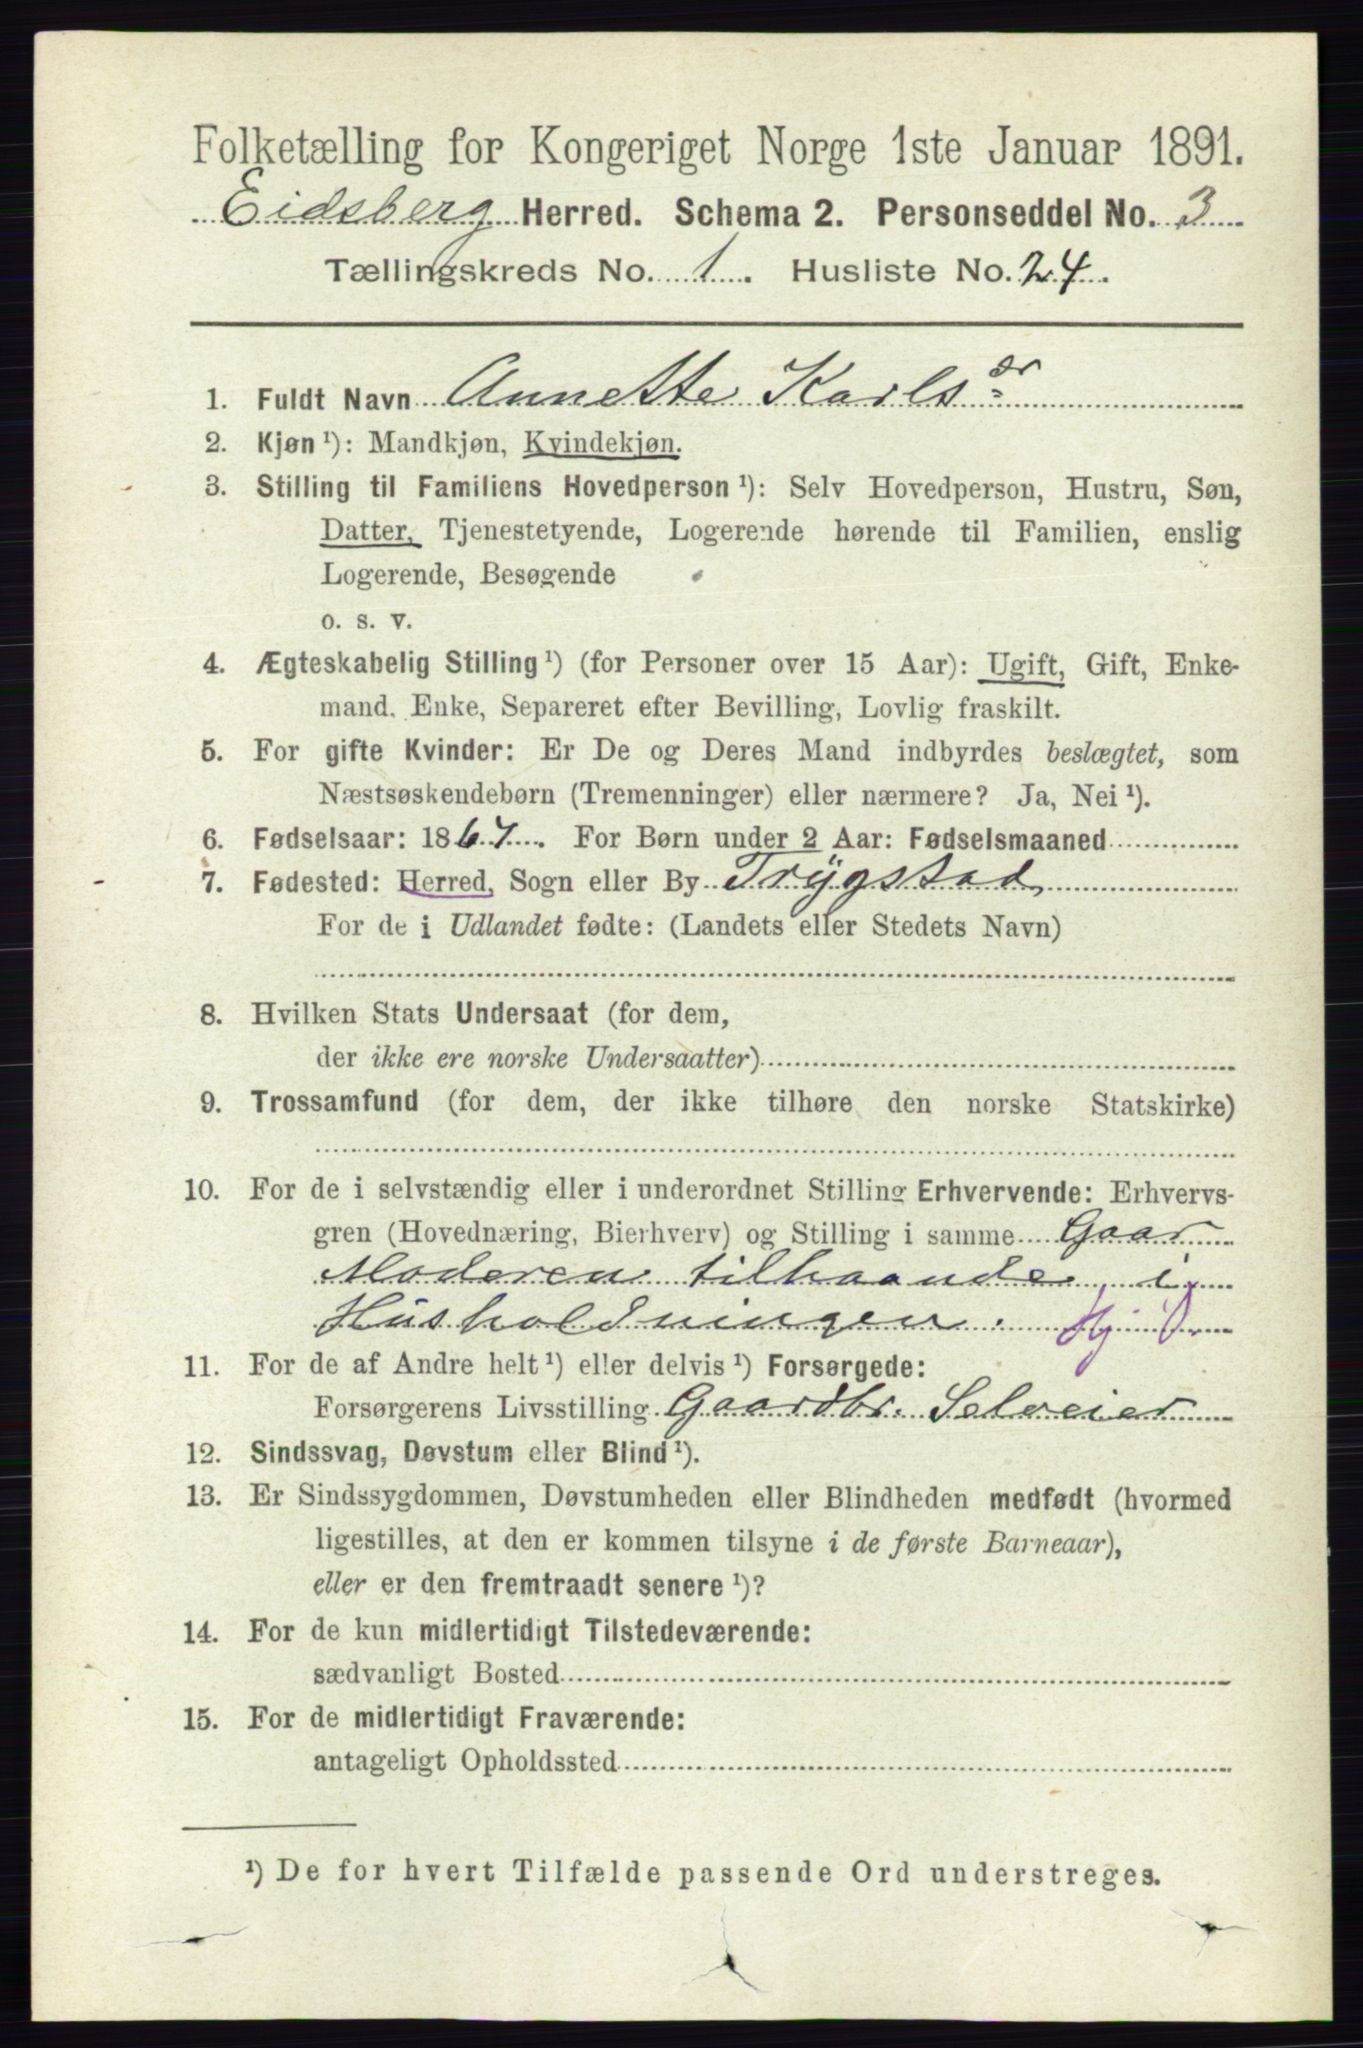 Folketælling for Kongeriget Norge 1ste Januar 1891.
Eidsberg Herred. Schema 2. Personseddel No. 3
Tællingskreds No. 1. Husliste No. 24.
1. Fuldt Navn Annette Karlsdr
2. Kjøn ¹): Mandkjøn, Kvindekjøn.
3. Stilling til Familiens Hovedperson ¹): Selv Hovedperson, Hustru, Søn,
Datter, Tjenestetyende, Logerende hørende til Familien, enslig
Logerende, Besøgende
o. s. v.
4. Ægteskabelig Stilling ¹) (for Personer over 15 Aar): Ugift, Gift, Enke-
mand, Enke, Separeret efter Bevilling, Lovlig fraskilt.
5. For gifte Kvinder: Er De og Deres Mand indbyrdes beslægtet, som
Næstsøskendebørn (Tremenninger) eller nærmere? Ja, Nei ¹).
6. Fødselsaar: 1867. For Børn under 2 Aar: Fødselsmaaned
7. Fødested: Herred, Sogn eller By Trygstad
For de i Udlandet fødte: (Landets eller Stedets Navn)
8. Hvilken Stats Undersaat (for dem,
der ikke ere norske Undersaatter)
9. Trossamfund (for dem, der ikke tilhøre den norske Statskirke)
10. For de i selvstændig eller i underordnet Stilling Erhvervende: Erhvervs-
gren (Hovednæring, Bierhverv) og Stilling i samme Gaar
Moderen tilhaande i
Husholdningen.
11. For de af Andre helt ¹) eller delvis ¹) Forsørgede:
Forsørgerens Livsstilling Gaardbr. Selveier
12. Sindssvag, Døvstum eller Blind ¹).
13. Er Sindssygdommen, Døvstumheden eller Blindheden medfødt (hvormed
ligestilles, at den er kommen tilsyne i de første Barneaar),
eller er den fremtraadt senere ¹)?
14. For de kun midlertidigt Tilstedeværende:
sædvanligt Bosted
15. For de midlertidigt Fraværende:
antageligt Opholdssted
¹) De for hvert Tilfælde passende Ord understreges.